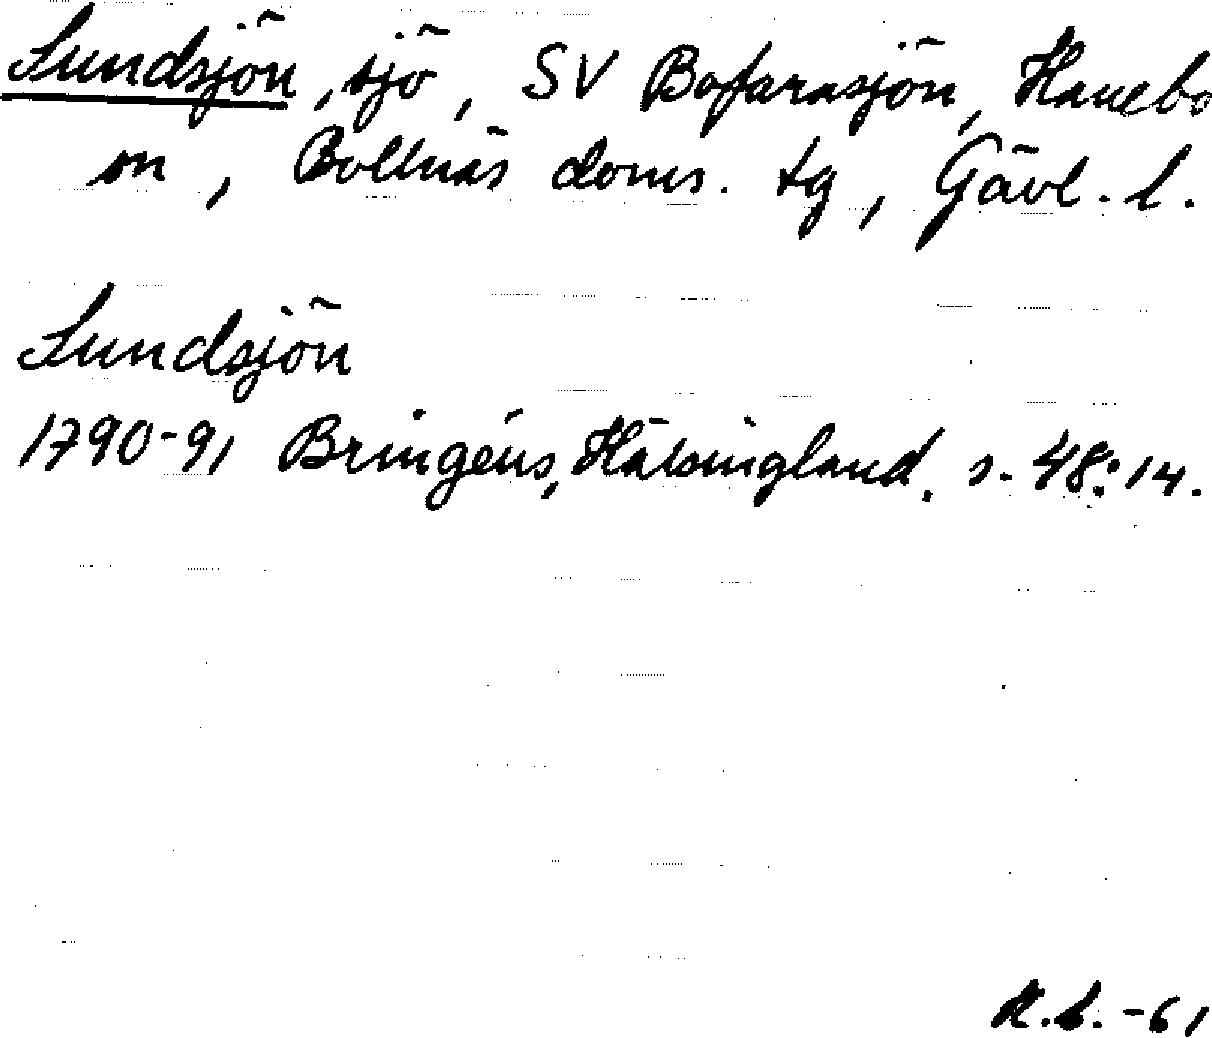 Sundsjön, sjö, SV Bofarasjön, Hanebo
sn, Bollnäs doms. tg, Gävl. l.
Sundsjön
1790-91 Bringéus, Hälsingland, s. 48:14.
-61